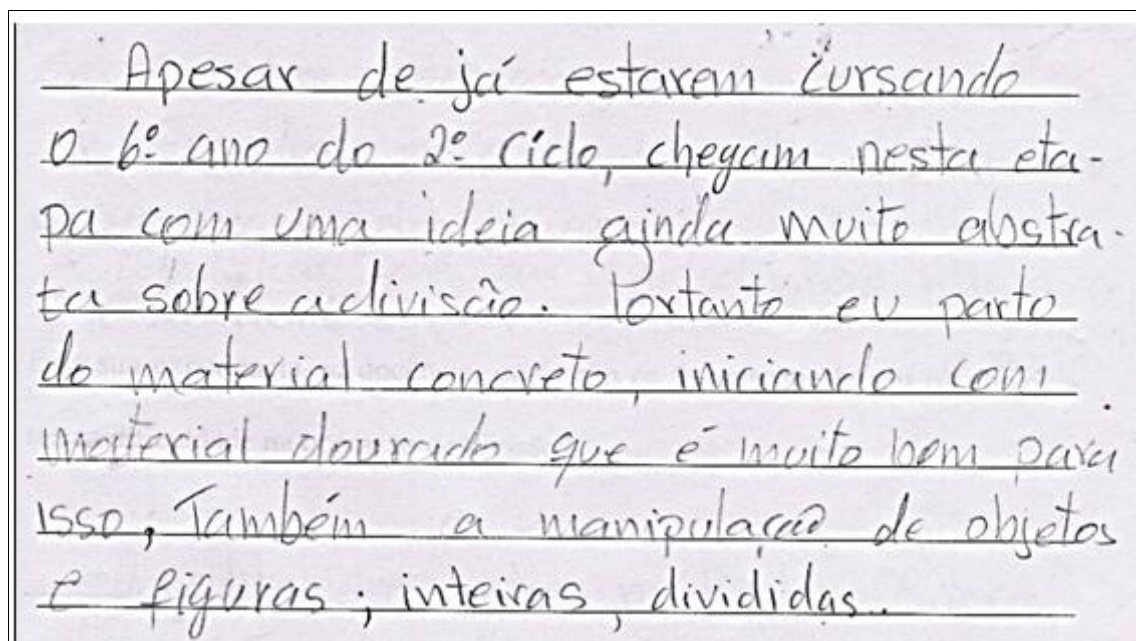 Apesar de já estarem cursando
o 6º ano do 2º ciclo, chegam nesta eta-
pa com uma ideia ainda muito abstra-
ta sobre a divisão. Portanto eu parto
do material concreto, iniciando com
material dourado que é muito bom para
isso, Também a manipulação de objetos
e figuras, inteiras, divididas.